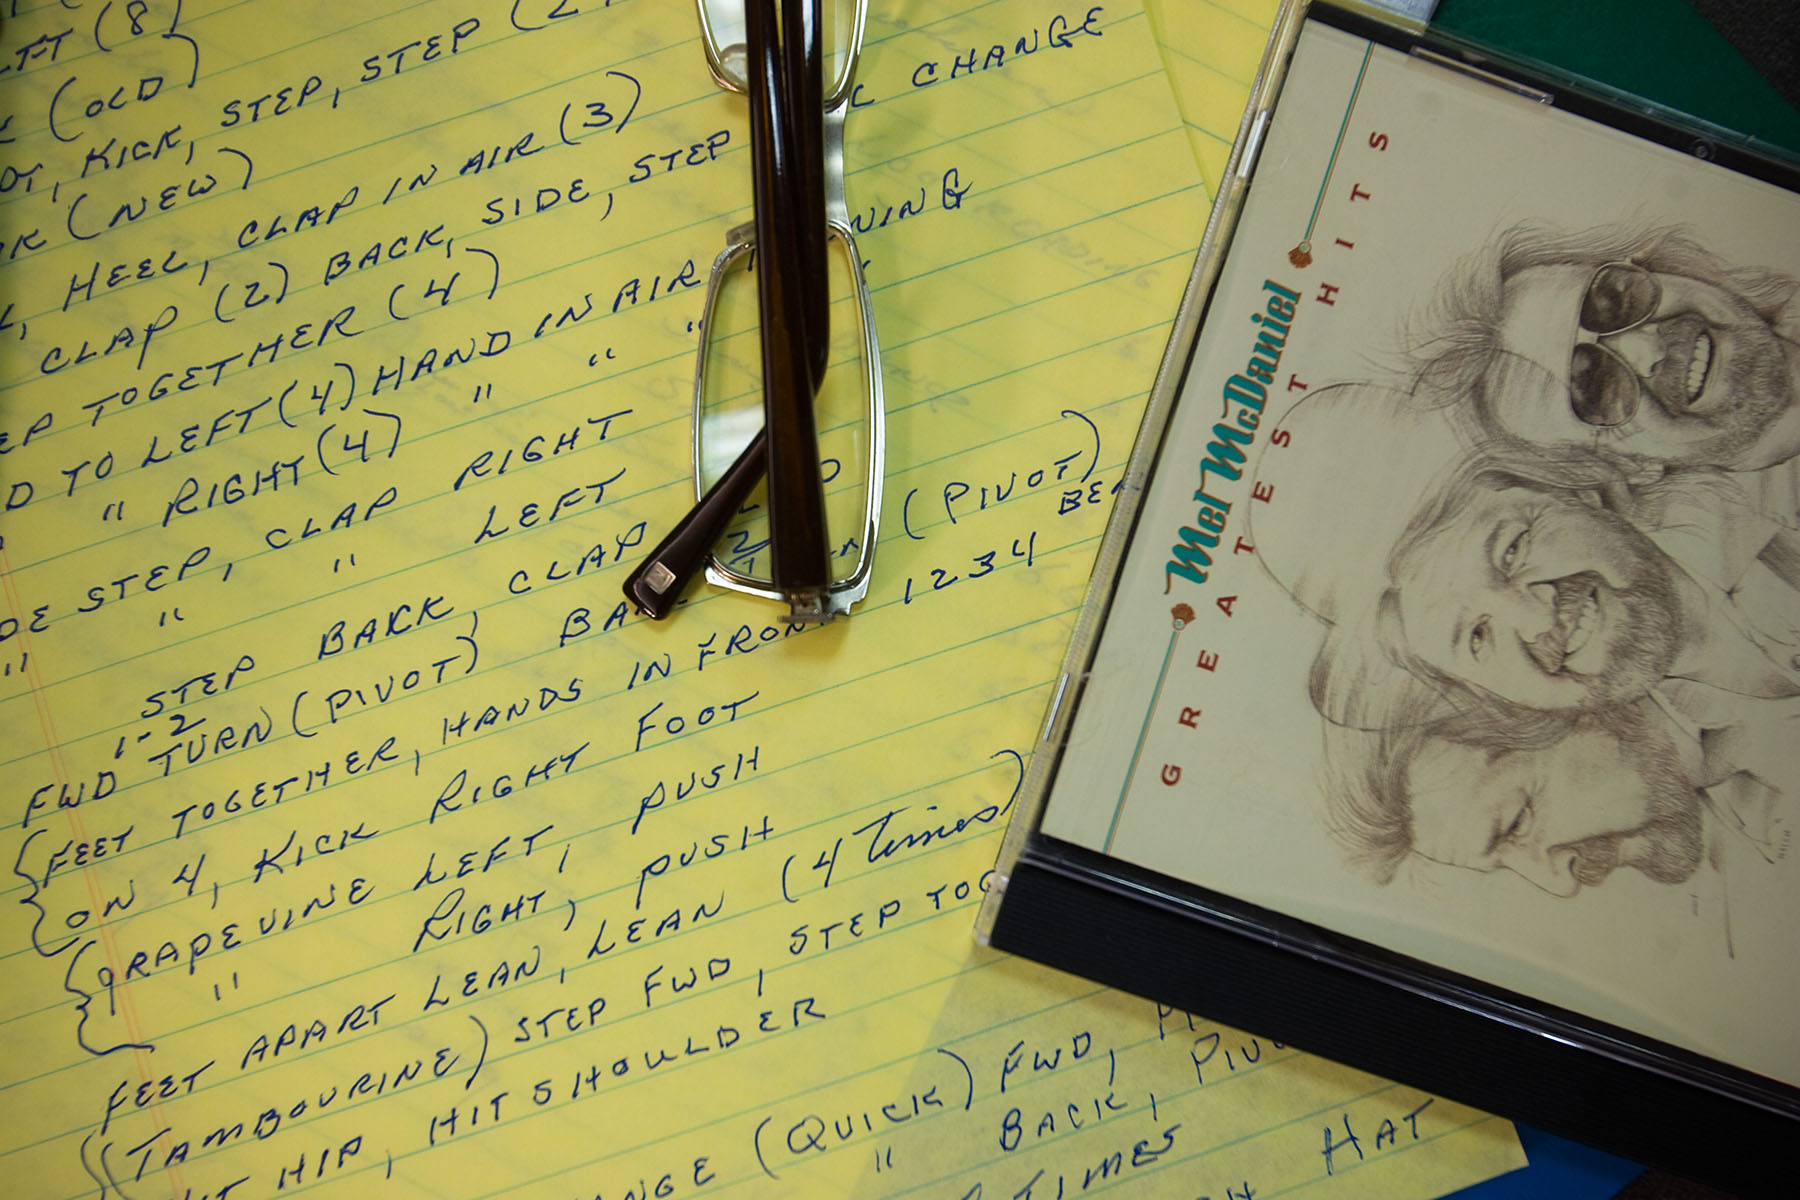 (8)
(OLD)
KICK, STEP, STEP
CHANGE
(NEW)
HEEL, CLAP IN AIR (3)
CLAP (2) BACK, SIDE, STEP
TOGETHER (4)
TO LEFT (4) HAND IN AIR
" RIGHT (4) " " "
STEP, CLAP RIGHT
" " " LEFT
STEP BACK, CLAP
FWD 1-2 TURN (PIVOT) (PIVOT)
FEET TOGETHER, HANDS IN FRONT 1234
ON 4, KICK RIGHT FOOT
GRAPEVINE LEFT, PUSH
" RIGHT, PUSH
FEET APART LEAN, LEAN (4 Times)
(TAMBOURINE) STEP FWD, STEP
HIP, HIT SHOULDER
(QUICK) FWD,
" BACK,
TIMES
HAT
Mel McDaniel
GREATEST HITS